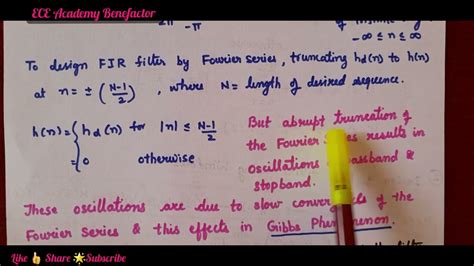 ECE Academy Benefactor
2π -π
-∞ ≤ n ≤ ∞
To design FIR filter by Fourier series, truncating hd(n) to h(n)
at n = ± (N-1/2), where N = length of desired sequence.
h(n) = { hd(n) for |n| ≤ N-1/2
= 0 otherwise
But abrupt truncation of
the Fourier results in
oscillations passband &
stopband.
These oscillations are due to slow of the
Fourier Series & this effects in Gibbs
Like 👍 Share 🌟 Subscribe